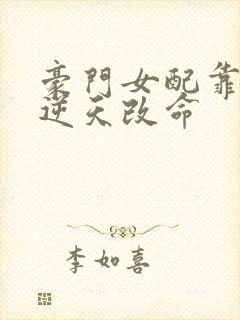 豪門女配靠
逆天改命
李如喜